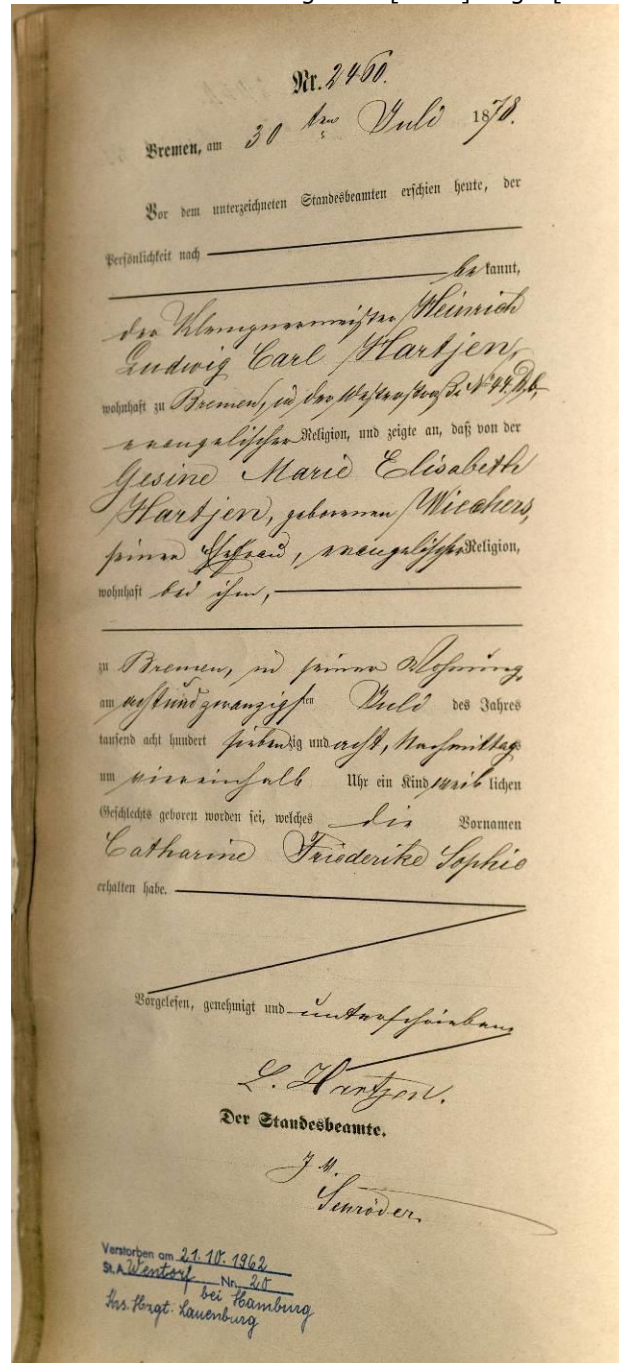 Nr. 2460.
Bremen, am 30 ten Juli 1878.
Vor dem unterzeichneten Standesbeamten erschien heute, der
Persönlichkeit nach
be kannt,
der Klempnermeister Heinrich
Ludwig Carl Hartjen,
wohnhaft zu Bremen, in der Westerstraße No 44.
evangelischer Religion, und zeigte an, daß von der
Gesine Marie Elisabeth
Hartjen, geborenen Wiechers,
seiner Ehefrau, evangelischer Religion,
wohnhaft bei ihm,
zu Bremen, in seiner Wohnung,
am achtundzwanzigsten Juli des Jahres
tausend acht hundert siebenzig und acht, Nachmittags
um viereinhalb Uhr ein Kind weib lichen
Geschlechts geboren worden sei, welches die Vornamen
Catharine Friederike Sophie
erhalten habe.
Vorgelesen, genehmigt und unterschrieben
L. Hartjen.
Der Standesbeamte.
J. V.
Schröder.
Verstorben am 21.10.1962
St.A. Wentorf Nr. 20
bei Hamburg
Krs. Hzgt. Lauenburg